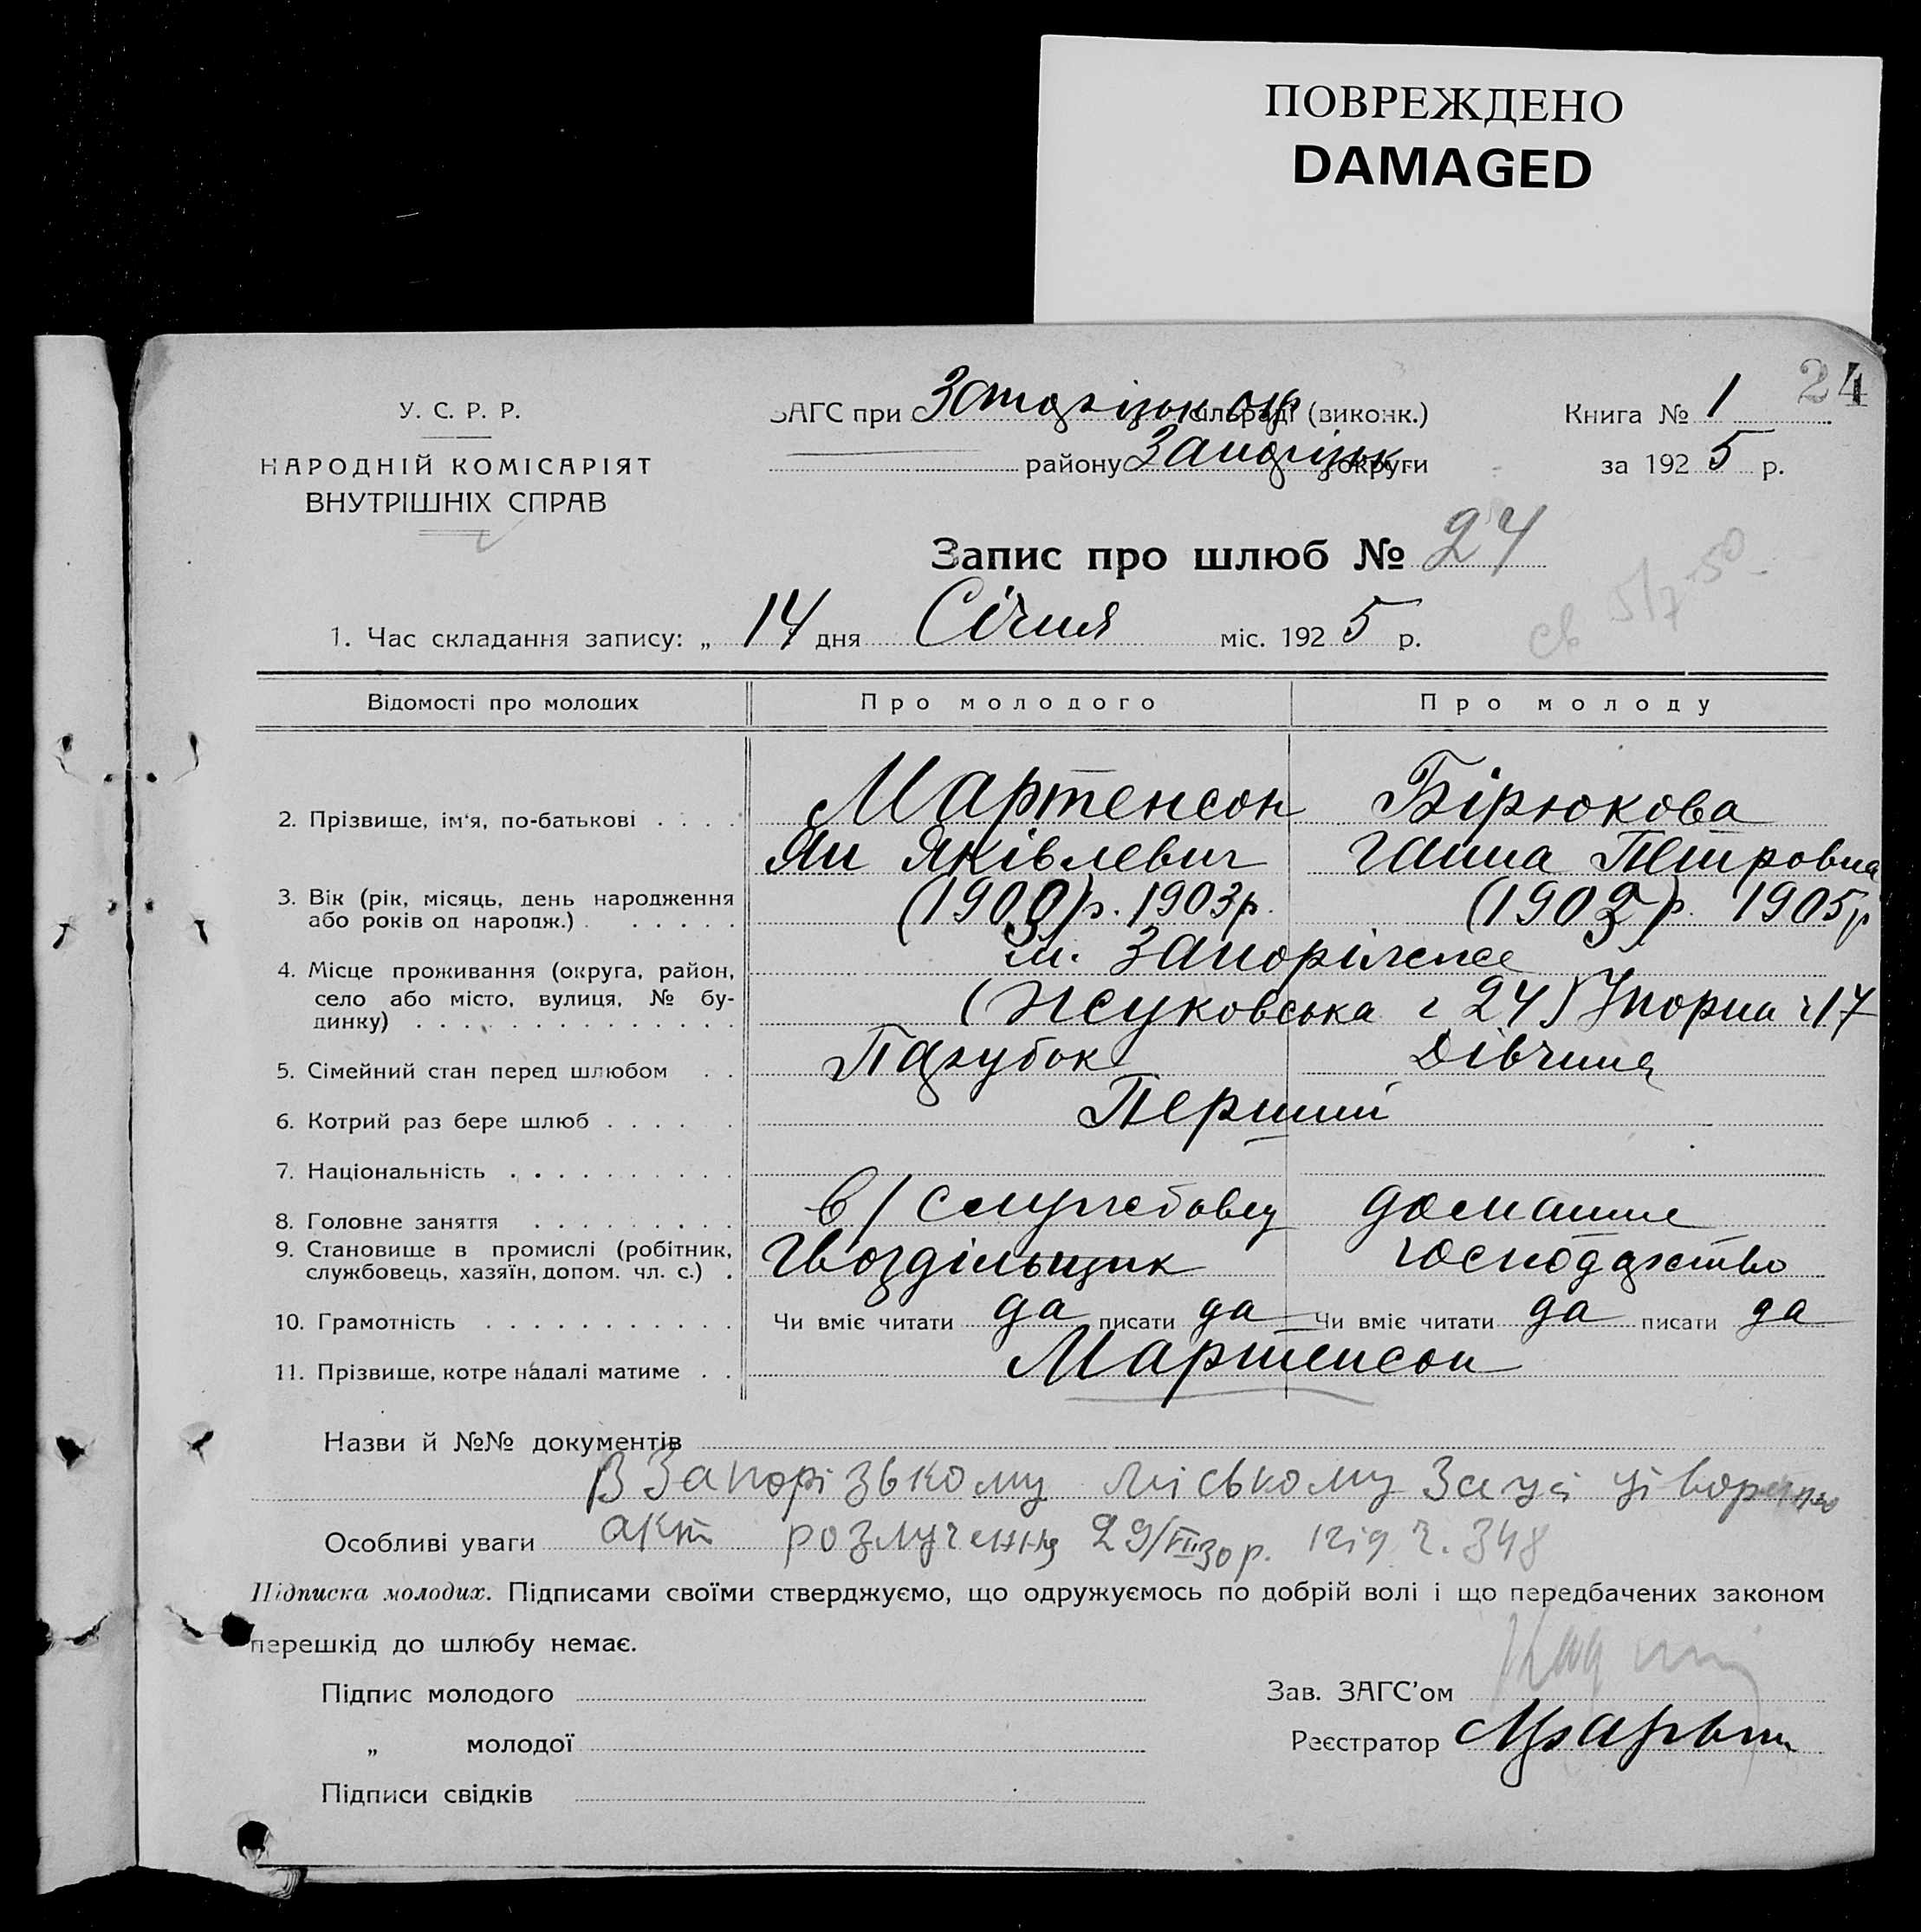 ПОВРЕЖДЕНО
DAMAGED
24
У. С. Р. Р.
НАРОДНІЙ КОМІСАРІЯТ
ВНУТРІШНІХ СПРАВ
ЗАГС при сільраді (виконк.)
району округи
Книга № 1
за 1925 р.
Запис про шлюб № 24
1. Час складання запису: „ 14 дня Січня міс. 1925 р.
Відомості про молодих
Про молодого
Про молоду
2. Прізвище, ім'я, по-батькові . . . .
Мартенсон
Ян Яківлевич
Бірюкова
Ганна Петровна
3. Вік (рік, місяць, день народження
або років од народж.) . . . . . .
р. 1903р.
р. 1905р
4. Місце проживання (округа, район,
село або місто, вулиця, № бу-
динку) . . . . . . . . . . . . . .
м. Запоріжжє
(Жуковська ч 24) ч 17
5. Сімейний стан перед шлюбом . .
Парубок
Дівчина
6. Котрий раз бере шлюб . . . . . .
Перший
7. Національність . . . . . . . . . .
8. Головне заняття . . . . . . . . .
в/службовец
домашне
9. Становище в промислі (робітник,
службовець, хазяїн, допом. чл. с.) .
Гвоздільщик
господарство
10. Грамотність . . . . . . . . . . .
Чи вміє читати да писати да
Чи вміє читати да писати да
11. Прізвище, котре надалі матиме . .
Мартенсон
Назви й №№ документів
В Запорізькому міському Загсі
Особливі уваги акт розлучення 29/VII 30 р. під ч. 348
Підписка молодих. Підписами своїми стверджуємо, що одружуємось по добрій волі і що передбачених законом
перешкід до шлюбу немає.
Підпис молодого
„ молодої
Підписи свідків
Зав. ЗАГС'ом
Реєстратор